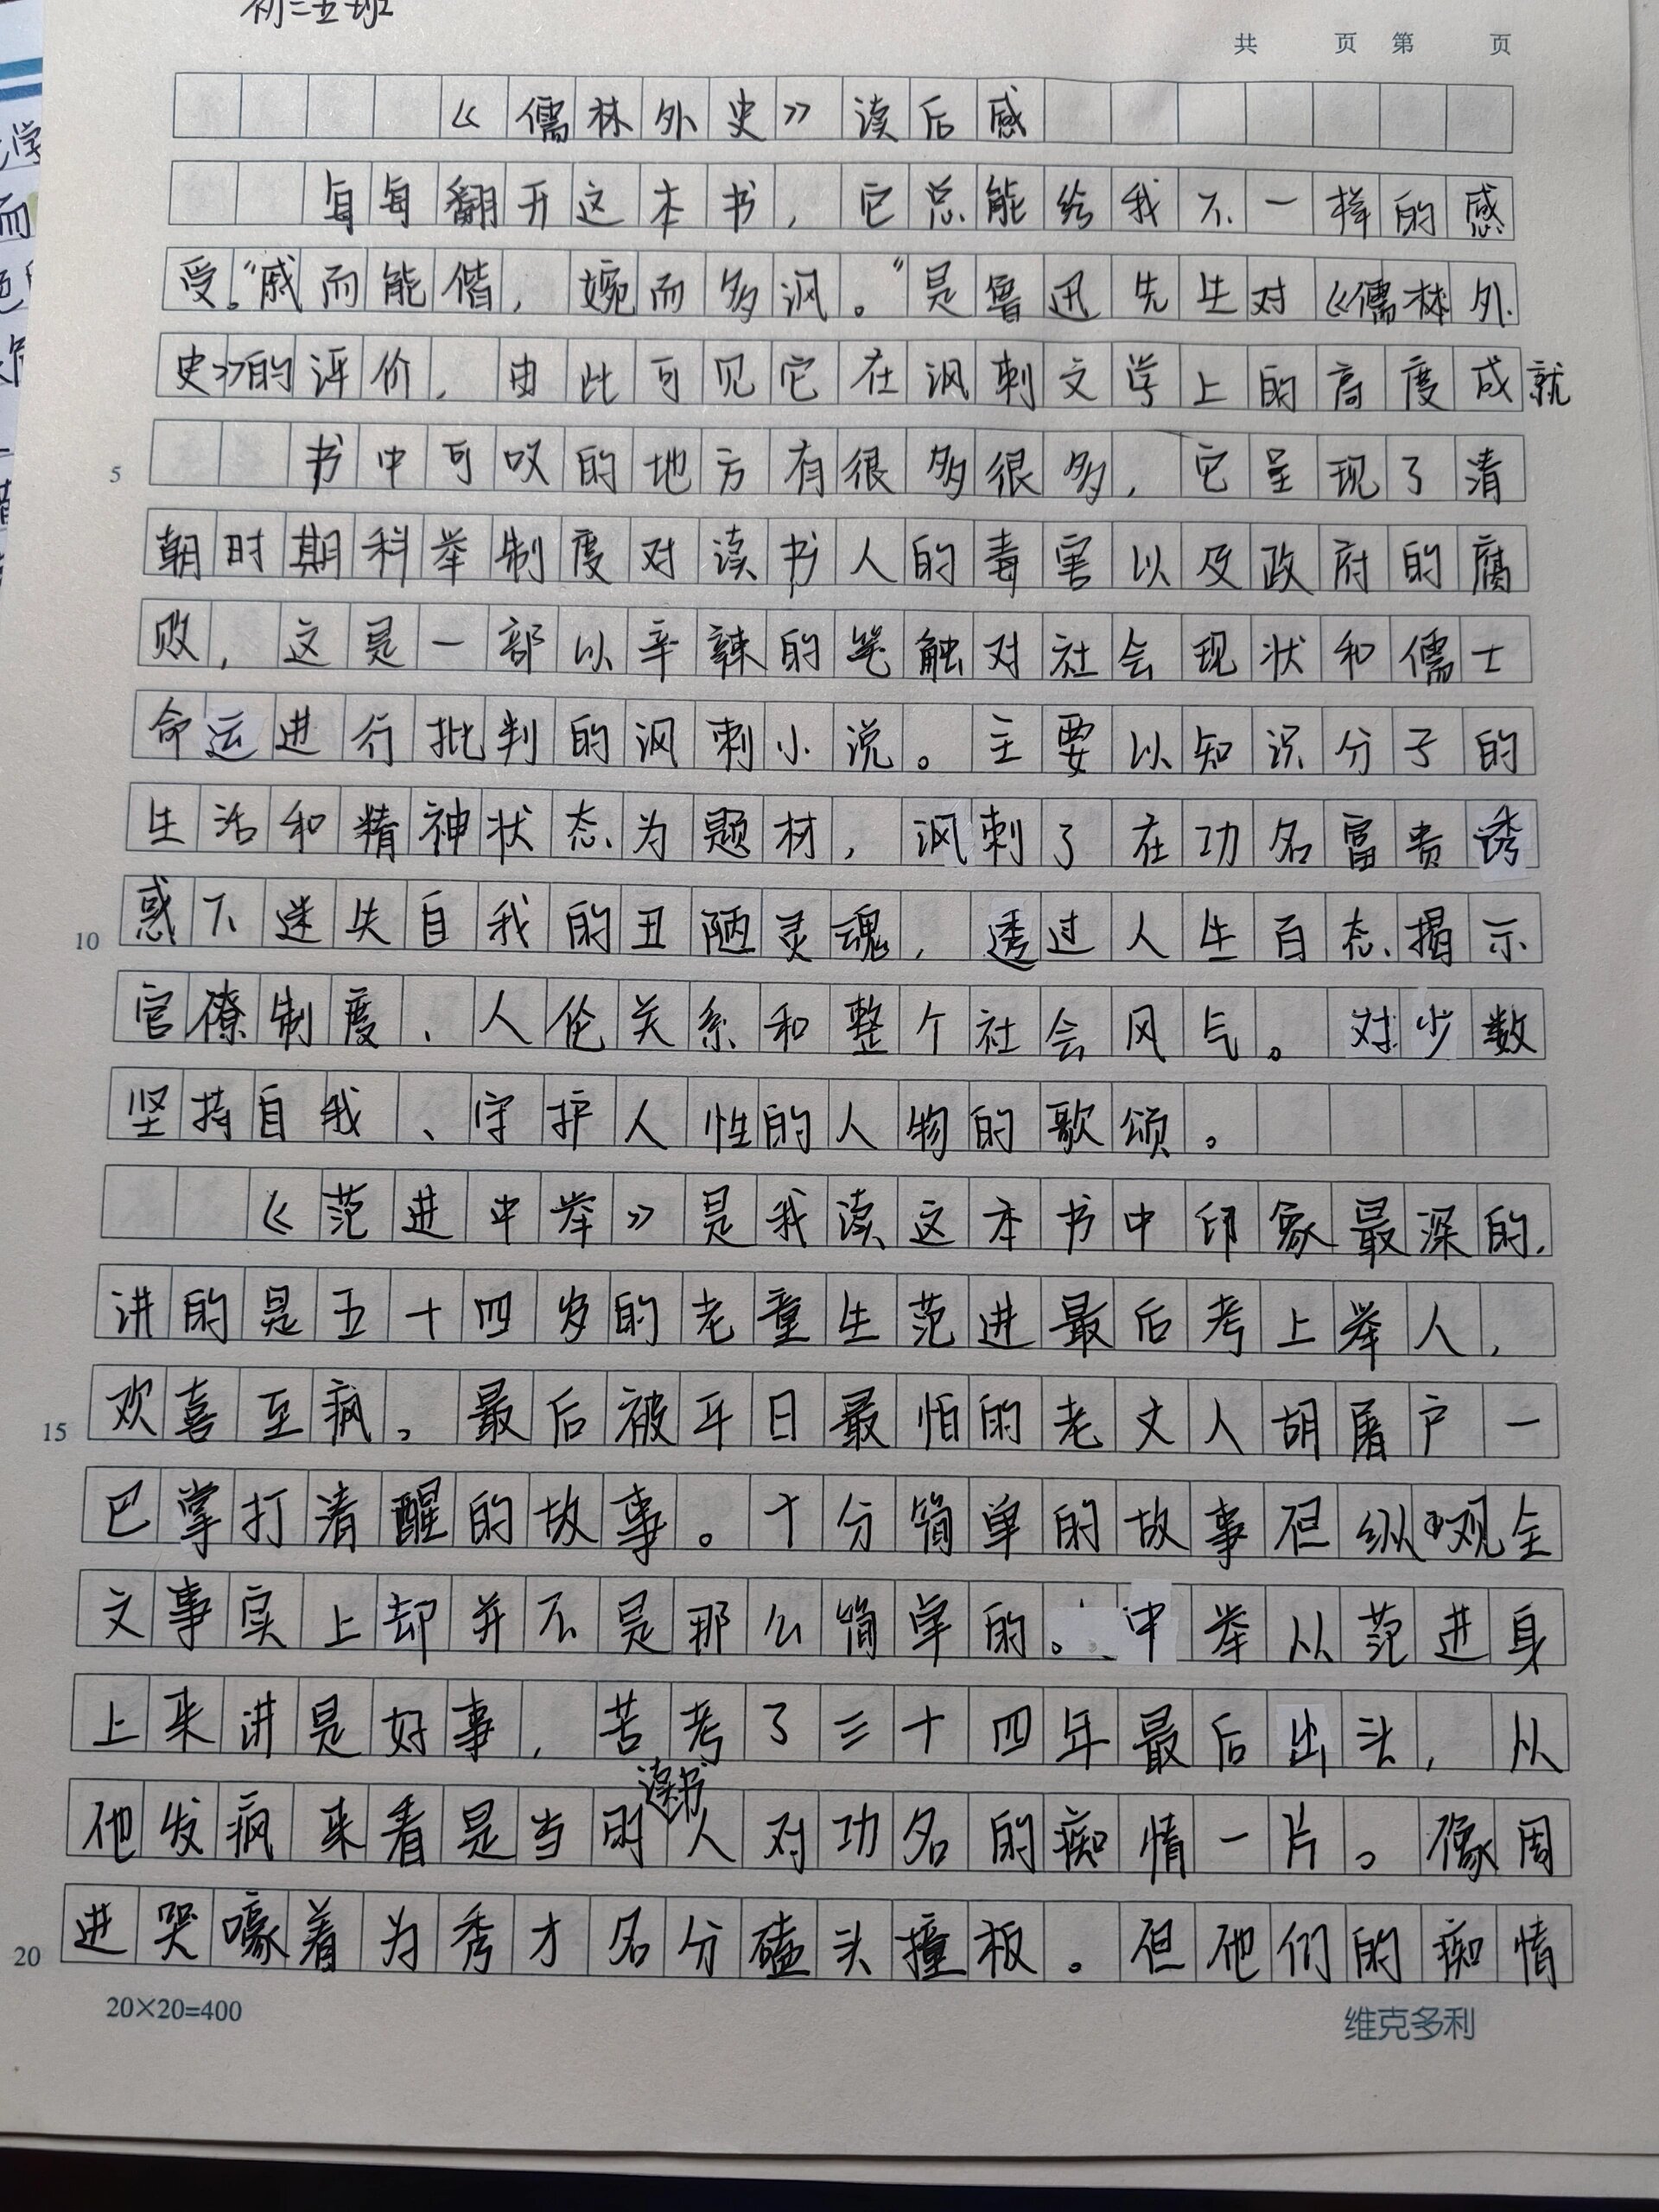 初二五班
共 页 第 页
《儒林外史》读后感
每每翻开这本书，它总能给我不一样的感
受。“戚而能偕，婉而多讽。”是鲁迅先生对《儒林外
史》的评价，由此可见它在讽刺文学上的高度成就
5 书中可叹的地方有很多很多，它呈现了清
朝时期科举制度对读书人的毒害以及政府的腐
败，这是一部以辛辣的笔触对社会现状和儒士
命运进行批判的讽刺小说。主要以知识分子的
生活和精神状态为题材，讽刺了在功名富贵诱
10 惑下迷失自我的丑陋灵魂，透过人生百态揭示
官僚制度、人伦关系和整个社会风气。对少数
坚持自我、守护人性的人物的歌颂。
《范进中举》是我读这本书中印象最深的，
讲的是五十四岁的老童生范进最后考上举人，
15 欢喜至疯。最后被平日最怕的老丈人胡屠户一
巴掌打清醒的故事。十分简单的故事但纵观全
文事实上却并不是那么简单的。中举从范进身
上来讲是好事，苦考了三十四年最后出头，从
他发疯来看是当时读书人对功名的痴情一片。像周
20 进哭嚎着为秀才名分磕头撞板。但他们的痴情
20×20=400 维克多利